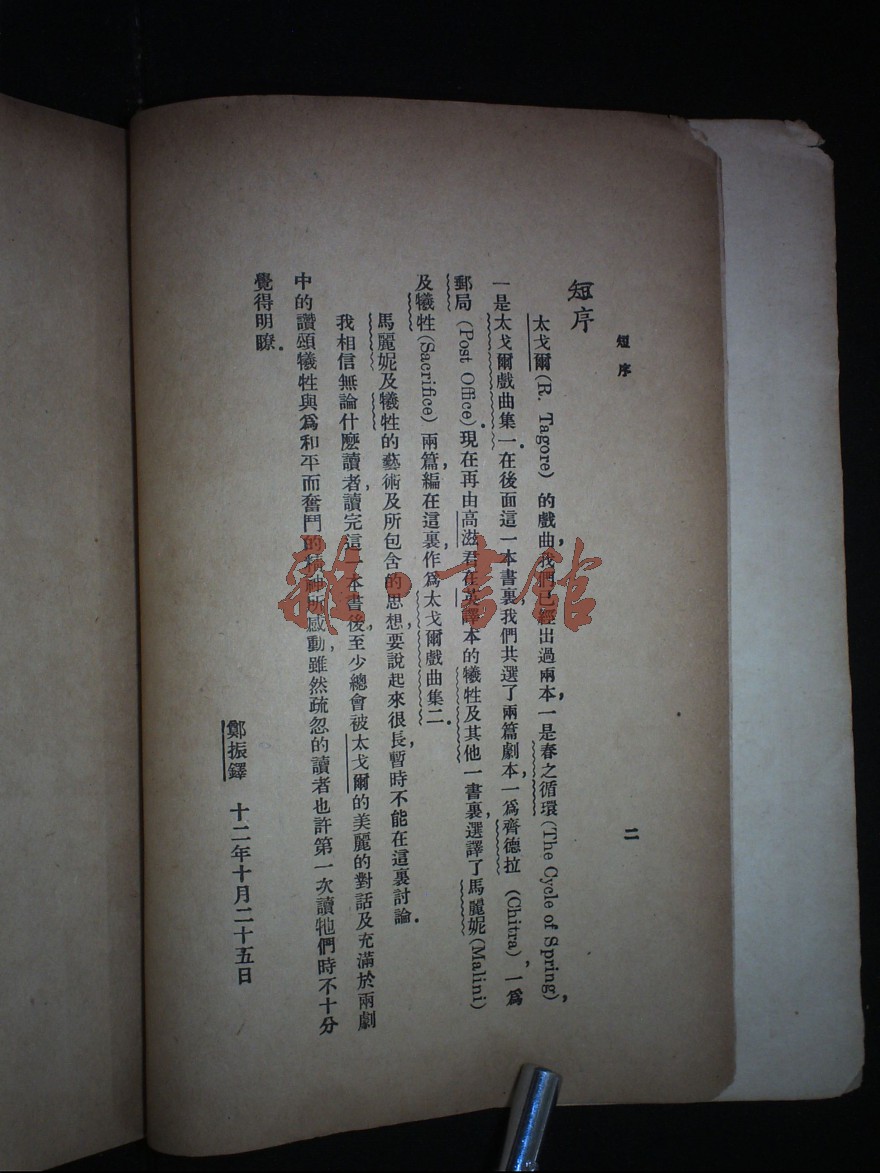 短序
二
短序
太戈爾(R. Tagore)的戲曲,我們已經出過兩本,一是春之循環(The Cycle of Spring),
一是太戈爾戲曲集一.在後面這一本書裏,我們共選了兩篇劇本,一爲齊德拉(Chitra),一爲
郵局(Post Office).現在再由高滋君在英譯本的犧牲及其他一書裏,選譯了馬麗妮(Malini)
及犧牲(Sacrifice)兩篇,編在這裏,作爲太戈爾戲曲集二.
馬麗妮及犧牲的藝術及所包含的思想,要說起來很長,暫時不能在這裏討論.
我相信無論什麽讀者,讀完這一本書後,至少總會被太戈爾的美麗的對話及充滿於兩劇
中的讚頌犧牲與爲和平而奮鬥的精神所感動,雖然疏忽的讀者也許第一次讀牠們時不十分
覺得明瞭.
鄭振鐸 十二年十月二十五日
雜·書館